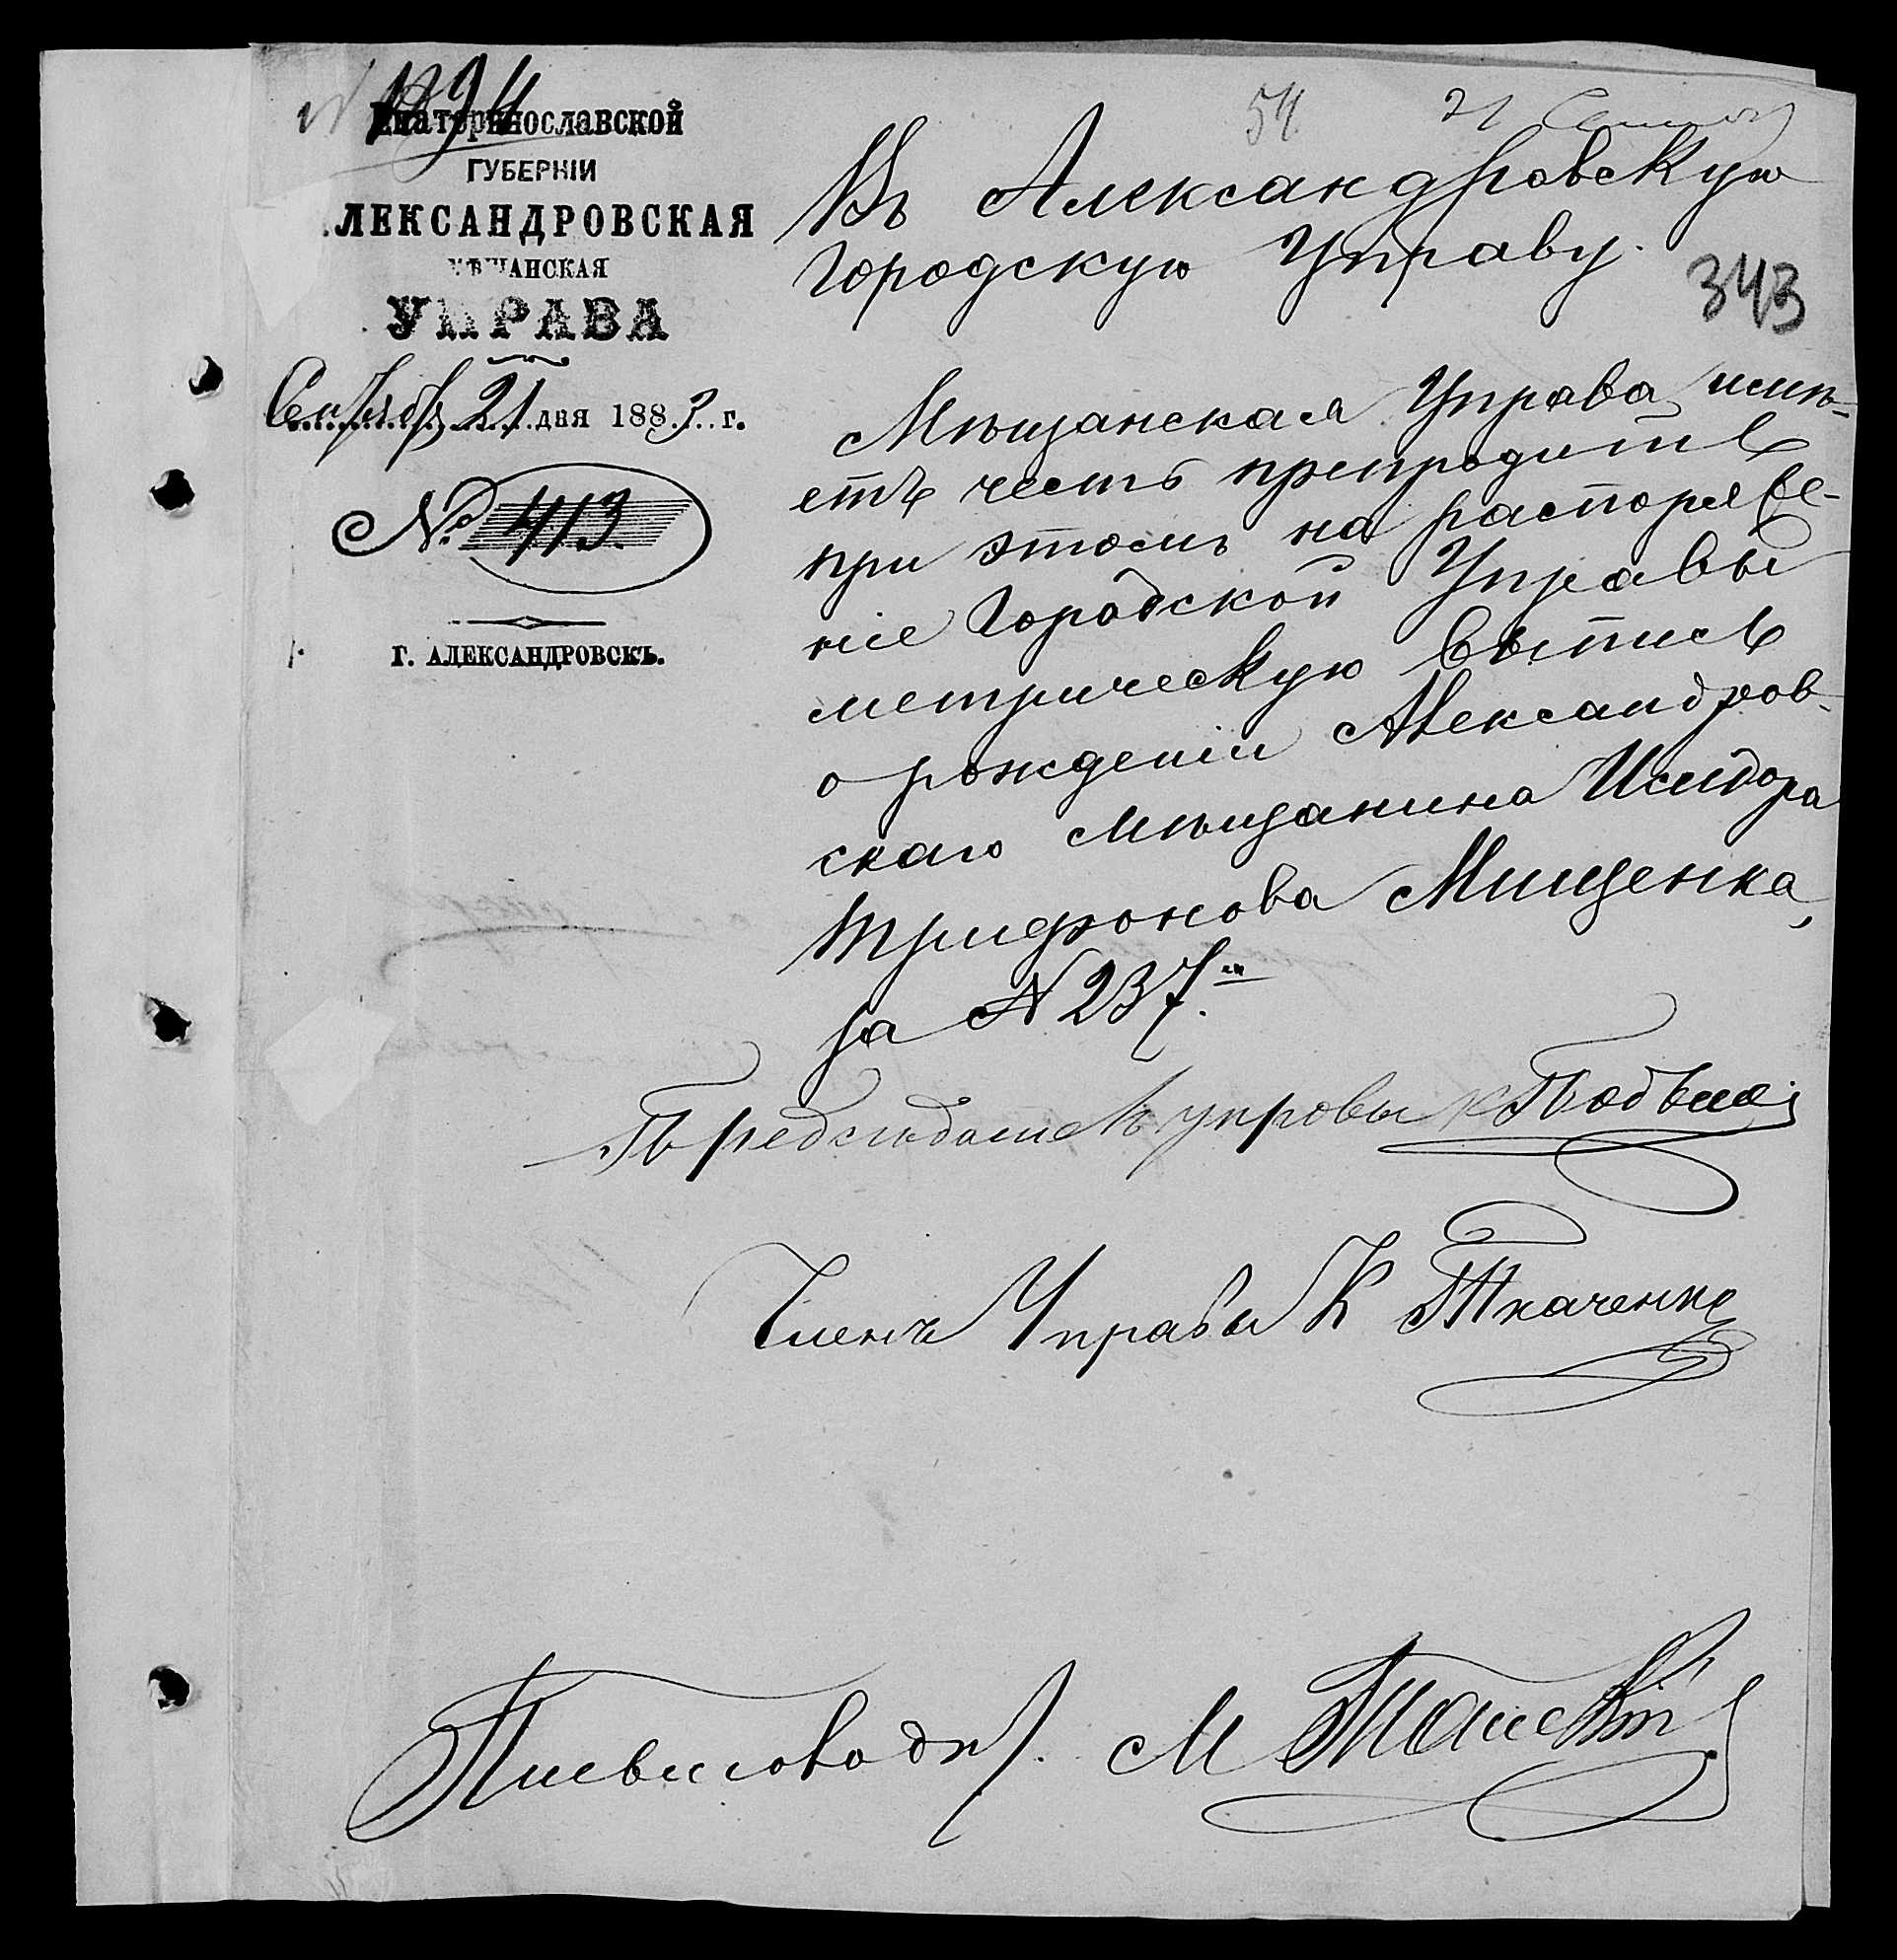 № 1294
Екатеринославской
ГУБЕРНІИ
АЛЕКСАНДРОВСКАЯ
МѢЩАНСКАЯ
УПРАВА
Сентября 21 дня 1883 г.
№ 413.
Г. АЛЕКСАНДРОВСКЪ.
54
21
Въ Александровскую
Городскую Управу.
343
Мѣщанская Управа имѣ-
етъ честь препроводить
при этомъ на распоряже-
ніе Городской Управы
метрическую выпись
о рожденіи Александров-
скаго мѣщанина Исидора
Трифонова Мищенка,
за № 237.
Предсѣдатель управы
Членъ Управы К Ткаченко
Письмоводит. М